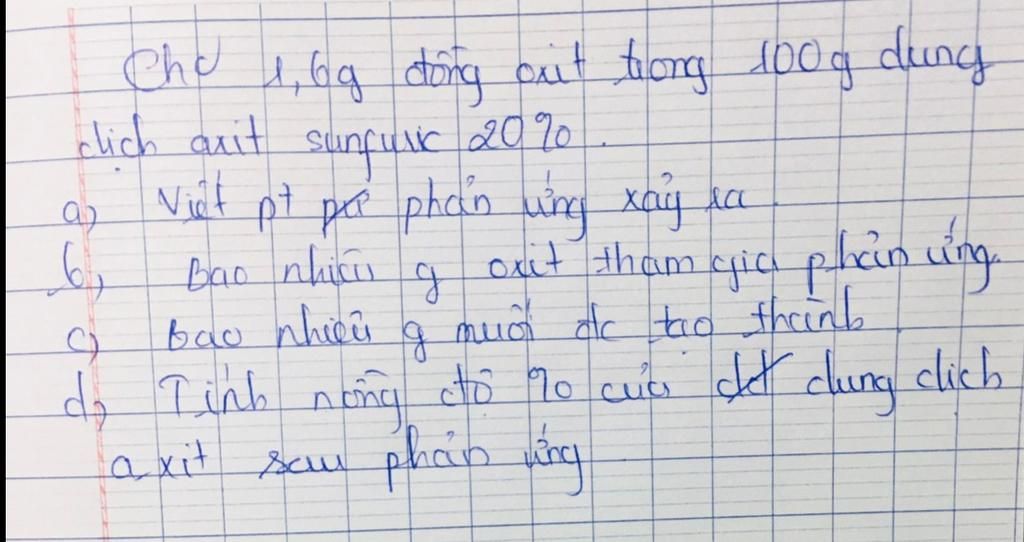 Cho 1,6g đồng oxit trong 100g dung
dịch axit sunfuric 20%.
a) Viết pt phản ứng xảy ra
b, Bao nhiêu g oxit tham gia phản ứng.
c) Bao nhiêu g muối đc tạo thành
d, Tính nồng độ % của dung dịch
axit sau phản ứng